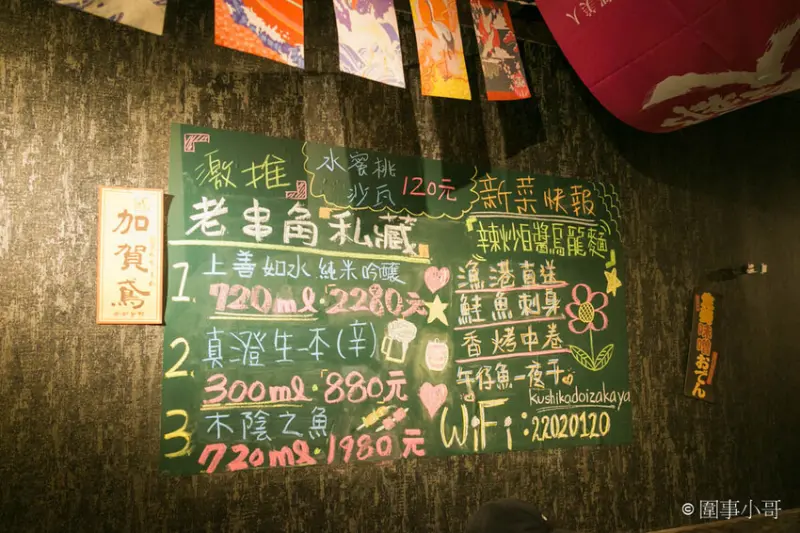 加賀鳶
激推
水蜜桃
沙瓦 120元
老串角 私藏
1. 上善如水 純米吟釀
720ml·2280元
2. 真澄生一本(辛)
300ml·880元
3. 木陰之魚
720ml·1980元
新菜快報
辣炒XO醬烏龍麵
漁港直送
鮭魚刺身
香烤中卷
午仔魚一夜干
kushikadoizakaya
WiFi:22020120
味噌おでん
© 圍事小哥